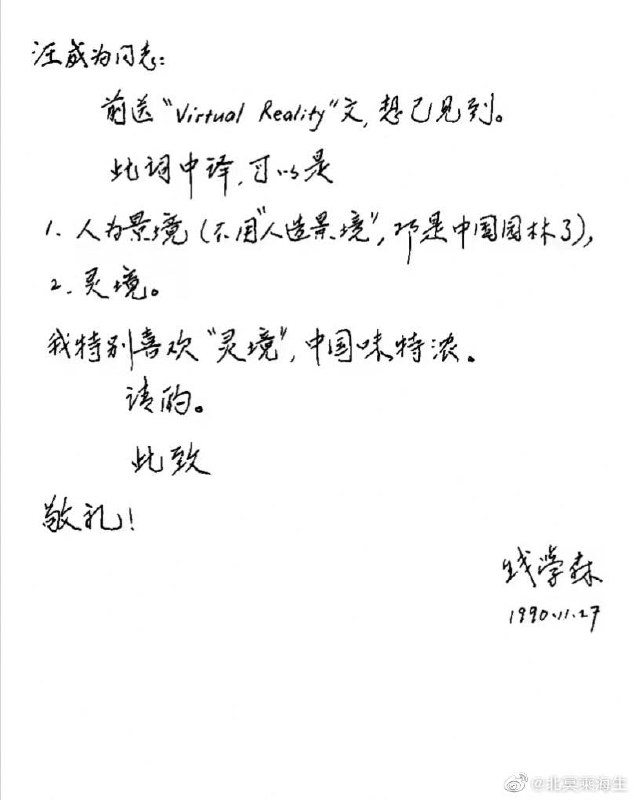 汪成为同志:
前送“Virtual Reality”文,想已见到。
此词中译,可以是
1. 人为景境(不用“人造景境”,那是中国园林了),
2. 灵境。
我特别喜欢“灵境”,中国味特浓。
请酌。
此致
敬礼!
钱学森
1990.11.27
@北冥乘海生